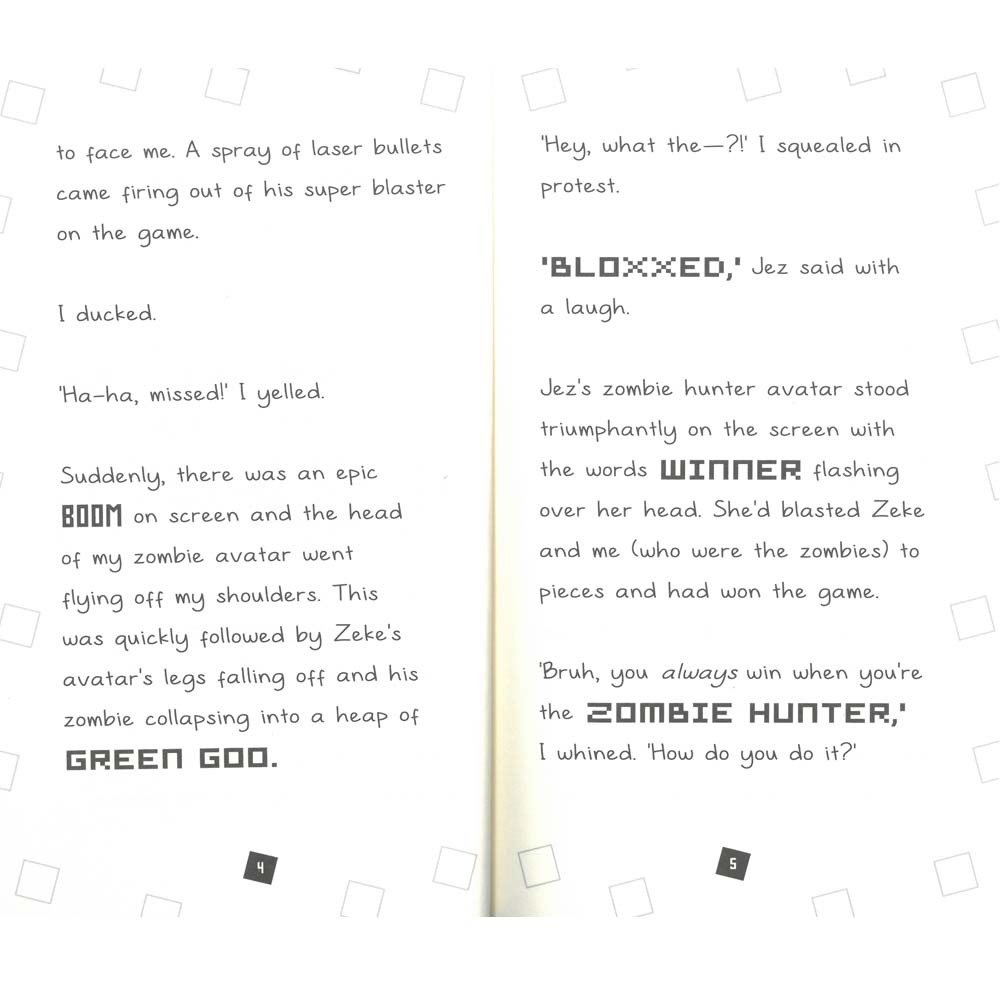 to face me. A spray of laser bullets
came firing out of his super blaster
on the game.
I ducked.
'Ha-ha, missed!' I yelled.
Suddenly, there was an epic
BOOM on screen and the head
of my zombie avatar went
flying off my shoulders. This
was quickly followed by Zeke's
avatar's legs falling off and his
zombie collapsing into a heap of
GREEN GOO.
4
'Hey, what the—?!' I squealed in
protest.
'BLOXXED,' Jez said with
a laugh.
Jez's zombie hunter avatar stood
triumphantly on the screen with
the words WINNER flashing
over her head. She'd blasted Zeke
and me (who were the zombies) to
pieces and had won the game.
'Bruh, you always win when you're
the ZOMBIE HUNTER,'
I whined. 'How do you do it?'
5